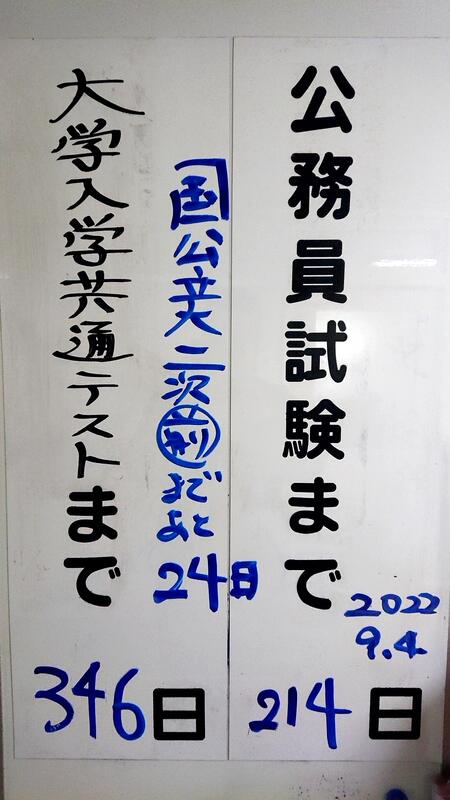 公務員試験まで
2022
9.4
214日
国公立大二次前まで
あと
24日
大学入学共通テストまで
346日